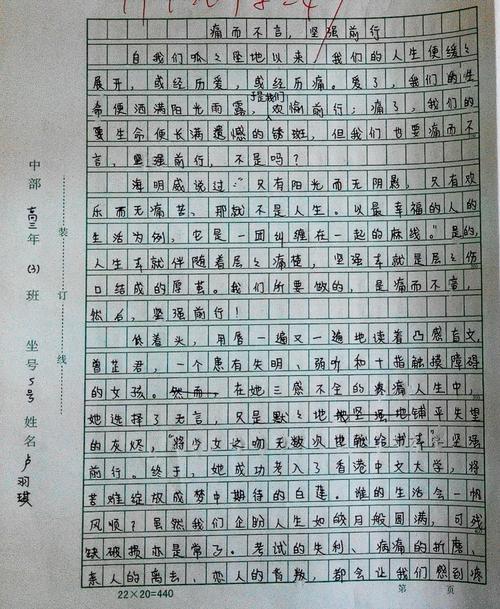 痛而不言，坚强前行
自我们呱々坠地以来，我们的人生便缓々
展开，或经历爱，或经历痛。爱了，我们的生
命便洒满阳光雨露，于是我们欢愉前行；痛了，我们的
要生命便长满遗憾的锈斑，但我们也要痛而不
言，坚强前行，不是吗？
海明威说过：“只有阳光而无阴影，只有欢
乐而无痛苦、那就不是人生。以最幸福的人的
生活为例，它是一团纠缠在一起的麻线。”是的，
人生本就伴随着层々痛楚，坚强本就是层々伤
口结成的厚茧。我们所要做的，是痛而不言，
然后，坚强前行！
低着头，用唇一遍又一遍地读着凸感盲文，
曾芷君，一个患有失明、弱听和十指触摸障碍
的女孩。然而，在她三感不全的疼痛人生中，
她选择了无言，只是默々地坚强地铺平失望
的灰烬，“将少女之吻无数次地献给书本”，坚强
前行。终于，她成功考入了香港中文大学，将
苦难绽放成梦中期待的白莲。谁的生活会一帆
风顺？虽然我们企盼人生如皎月般圆满，可残
缺破损亦是常了。考试的失利、病痛的折磨、
亲人的离去、恋人的背叛，都会让我们感到疼
22×20=440
第 页
中部 高三年(3)班 坐号5号 姓名 卢羽琪
装 订 线